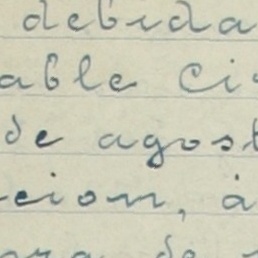 debida
able Ci
de agost
cion, á
de